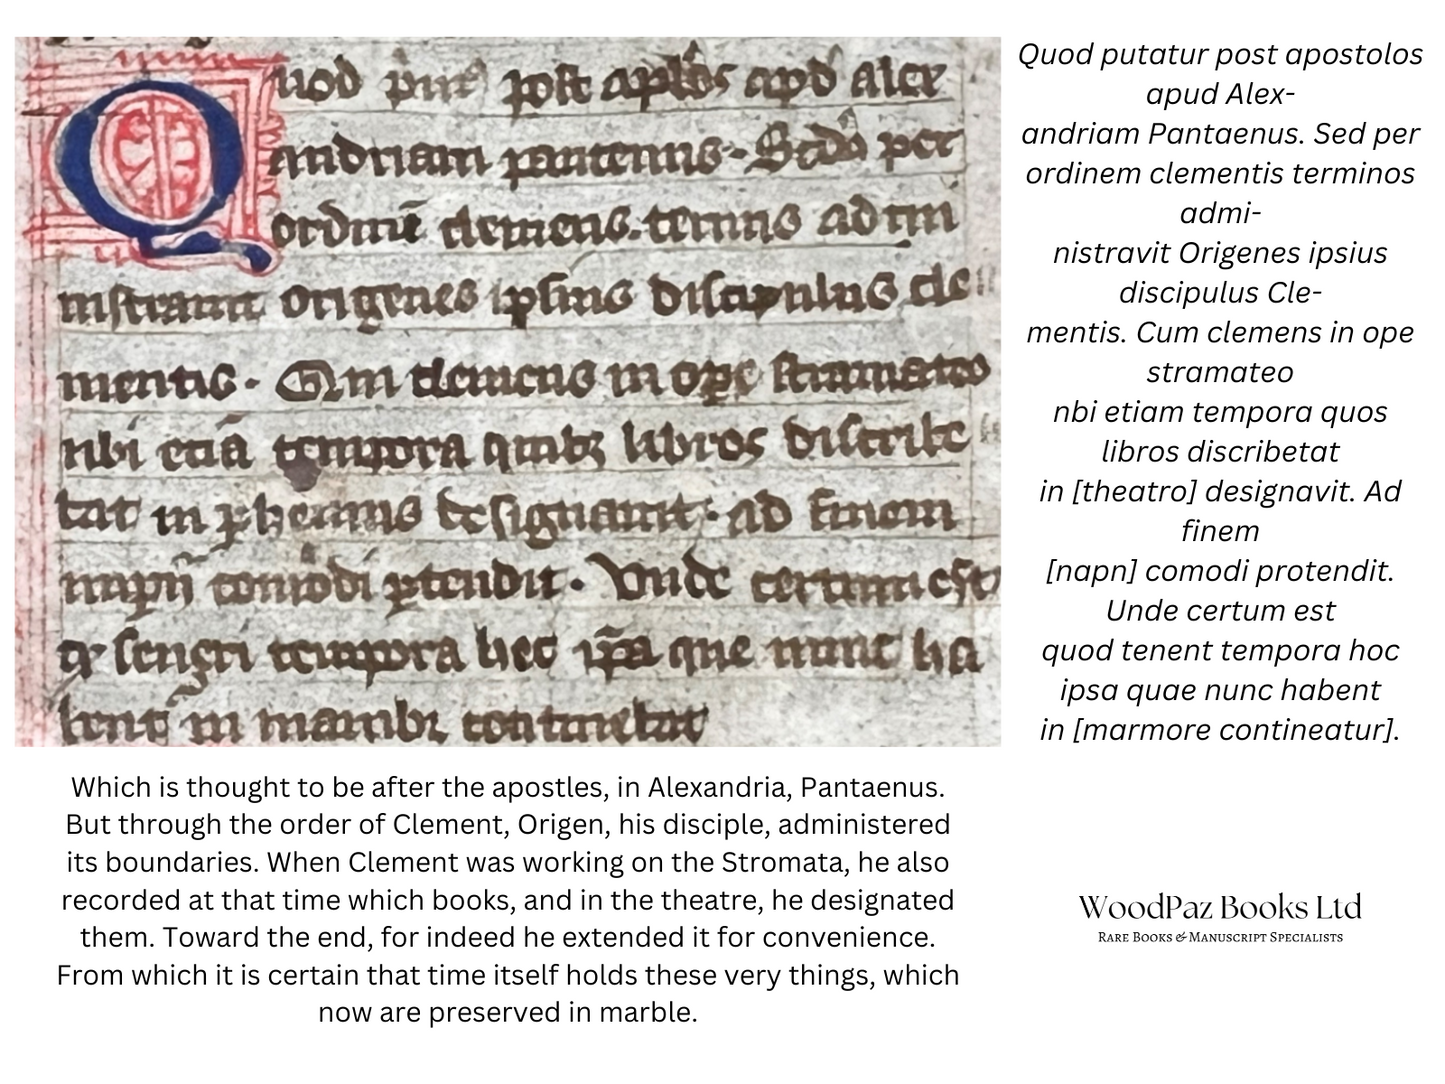 Quod pri post aplos apd alex
andriam pantenus. Scds per
ordine clemens. termis ad mi
nistrauit origenes ipsius discipulus cle
mentis. Cum clemens in ope stramateo
nbi etia tempora quibz libros discribe
bat in designauit. ad finem
comodi ptendit. Vnde certum est
tempora hec ipa que nunc ha
bent in continebat
Quod putatur post apostolos
apud Alex-
andriam Pantaenus. Sed per
ordinem clementis terminos
admi-
nistravit Origenes ipsius
discipulus Cle-
mentis. Cum clemens in ope
stramateo
nbi etiam tempora quos
libros discribetat
in [theatro] designavit. Ad
finem
[napn] comodi protendit.
Unde certum est
quod tenent tempora hoc
ipsa quae nunc habent
in [marmore contineatur].
Which is thought to be after the apostles, in Alexandria, Pantaenus.
But through the order of Clement, Origen, his disciple, administered
its boundaries. When Clement was working on the Stromata, he also
recorded at that time which books, and in the theatre, he designated
them. Toward the end, for indeed he extended it for convenience.
From which it is certain that time itself holds these very things, which
now are preserved in marble.
WoodPaz Books Ltd
Rare Books & Manuscript Specialists